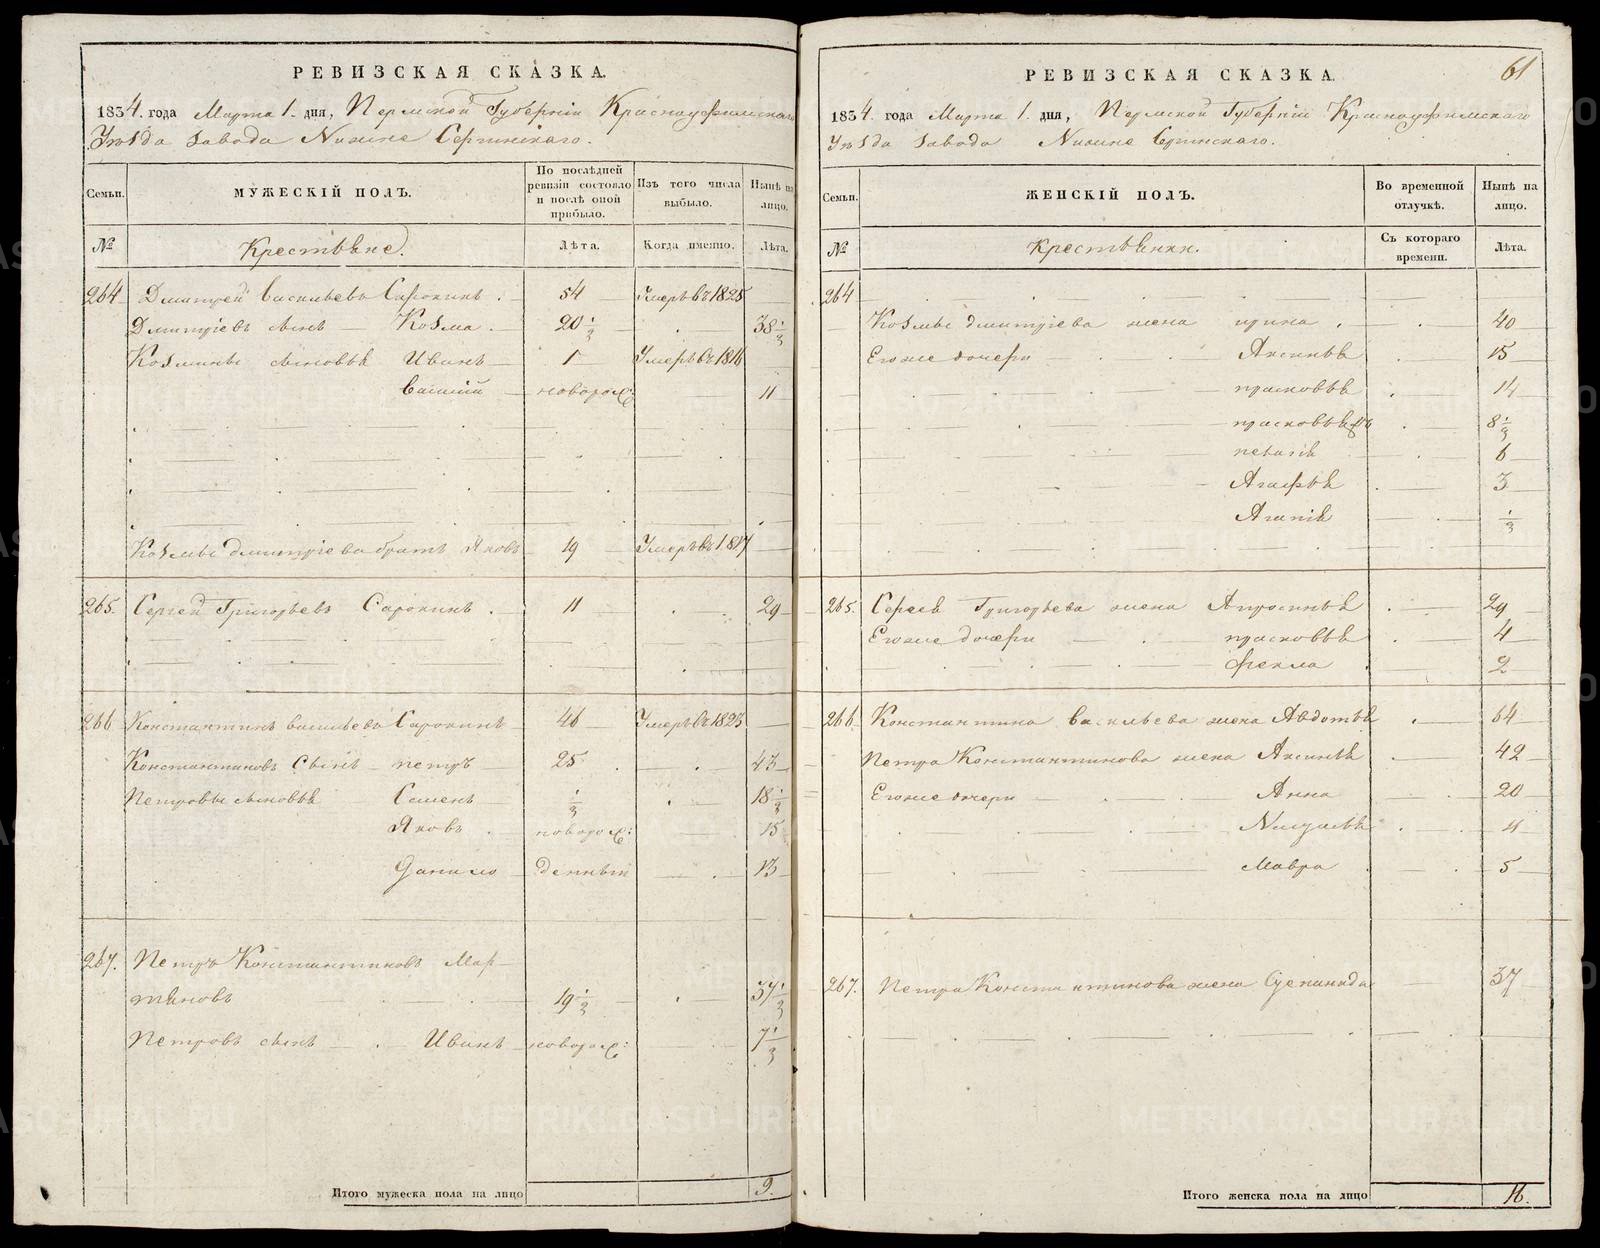 РЕВИЗСКАЯ СКАЗКА.
1834. года Марта 1. дня, Пермской Губерніи Красноуфимскаго
Уѣзда Завода Нижне Сергинскаго.
Семьи. МУЖЕСКІЙ ПОЛЪ. По послѣдней ревизіи состояло и послѣ оной прибыло. Изъ того числа выбыло. Нынѣ на лицо.
№ Крестьяне. Лѣта. Когда именно. Лѣта.
264 Дмитрей Васильевъ Сарокинъ. 54 Умеръ въ 1825
Дмитріевъ сынъ Козма. 20 1/2 38 1/2
Козмины сыновья Иванъ 1 Умеръ въ 1816
Василій новорож: 11
Козмы Дмитріева братъ Яковъ 19 Умеръ въ 1817
265. Сергей Григорьевъ Сарокинъ. 11 29
266 Константинъ Васильевъ Сарокинъ 46 Умеръ въ 1823
Константиновъ Сынъ петръ 25 43
Петровы сыновья Семенъ 1/2 18 1/2
Яковъ новорож: 15
Данило денный 13
267. Петръ Константиновъ Мар
тяновъ 19 1/2 37 1/2
Петровъ сынъ Иванъ новорож: 7 1/2
Итого мужеска пола на лицо 9.
61
РЕВИЗСКАЯ СКАЗКА.
1834. года Марта 1. дня, Пермской Губерніи Красноуфимскаго
Уѣзда Завода Нижне Сергинскаго.
Семьи. ЖЕНСКІЙ ПОЛЪ. Во временной отлучкѣ. Нынѣ на лицо.
№ Крестьянки. Съ котораго времени. Лѣта.
264
Козмы дмитріева жена ирина. 40
Егоже дочери Аксинья 15
прасковья 14
прасковья 8 1/2
пелагія 6
Агафья 3
Агапія 1/2
265. Сергея Григорьева жена Апросинья 29
Егоже дочери прасковья 4
фекла 2
266. Константина Васильева жена Авдотья 64
Петра Константинова жена Аксинья 42
Егоже дочери Анна 20
Маврa 5
267. Петра Константинова жена Степанида 37
Итого женска пола на лицо 16.
METRIKI.GASO-URAL.RU